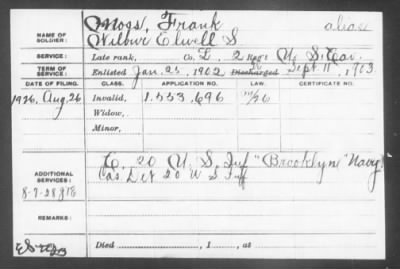 Moss, Frank alias
NAME OF SOLDIER: Wilbur Elwell S
SERVICE: Late rank, Co. L, 2 Reg't U. S. Cav.
TERM OF SERVICE: Enlisted Jan. 25, 1902 Discharged Sept 11, 1903
DATE OF FILING. CLASS. APPLICATION NO. LAW. CERTIFICATE NO.
1926, Aug. 26 Invalid, 1.553.696
Widow,
Minor,
C, 20 U. S. Inf "Brooklyn" Navy
ADDITIONAL SERVICES: Cas Det 20 U S Inf
8-7-28
REMARKS:
Died , 1 , at